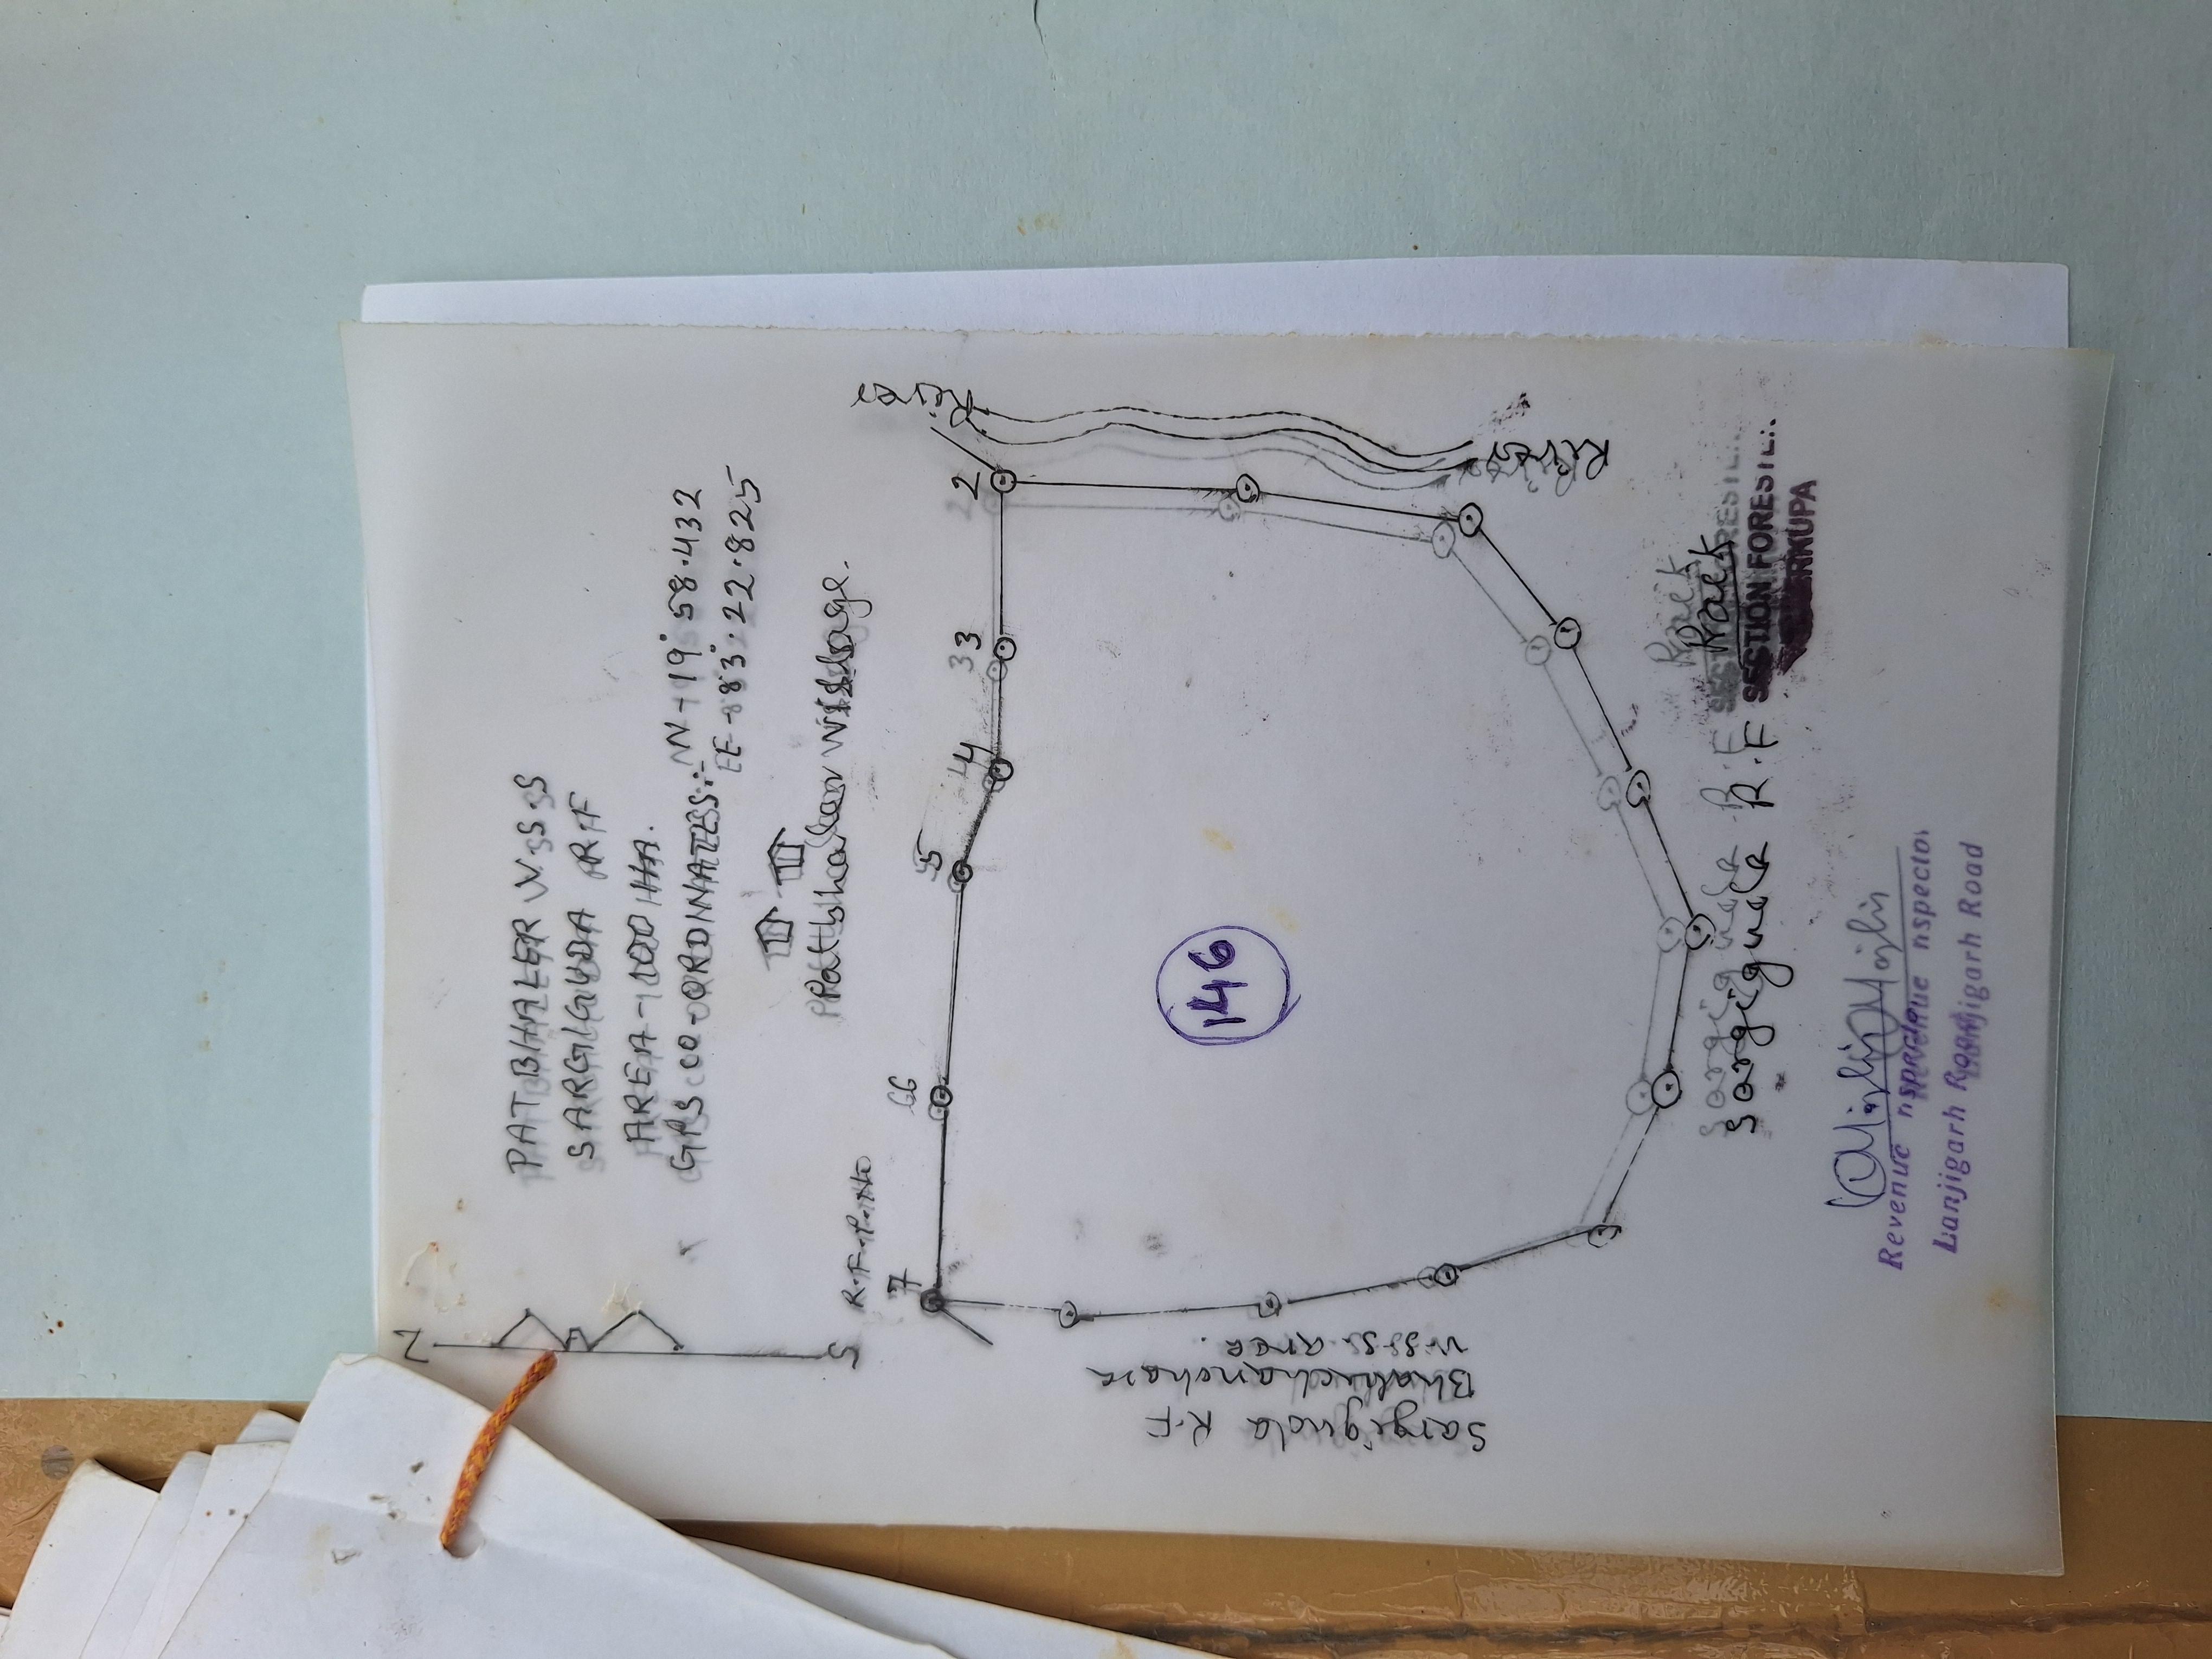 N
S
PATBHALER W.S.S
SARGIGUDA RF
AREA-100 HA.
GPS CO-ORDINATES:- N-19°58.432
E-83°.22.825
Patbhaler village.
R.F.P.No
7
6
5
4
3
2
River
River
146
Sargiguda R.F
W.S.S. area.
Sargiguda R.F
SECTION FORESTER
Revenue nspector
Lanjigarh Road